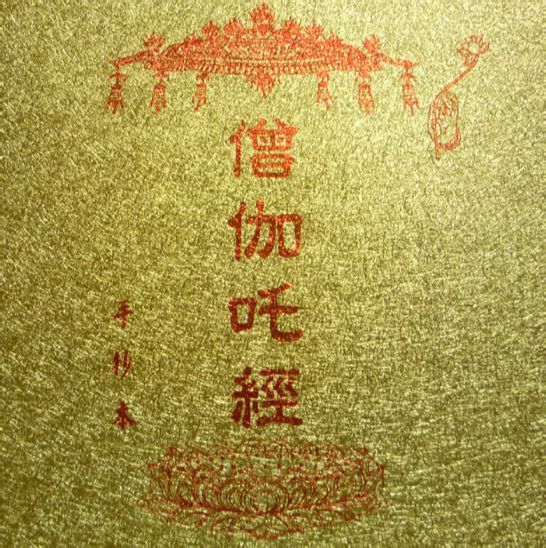 僧伽吒經
手抄本